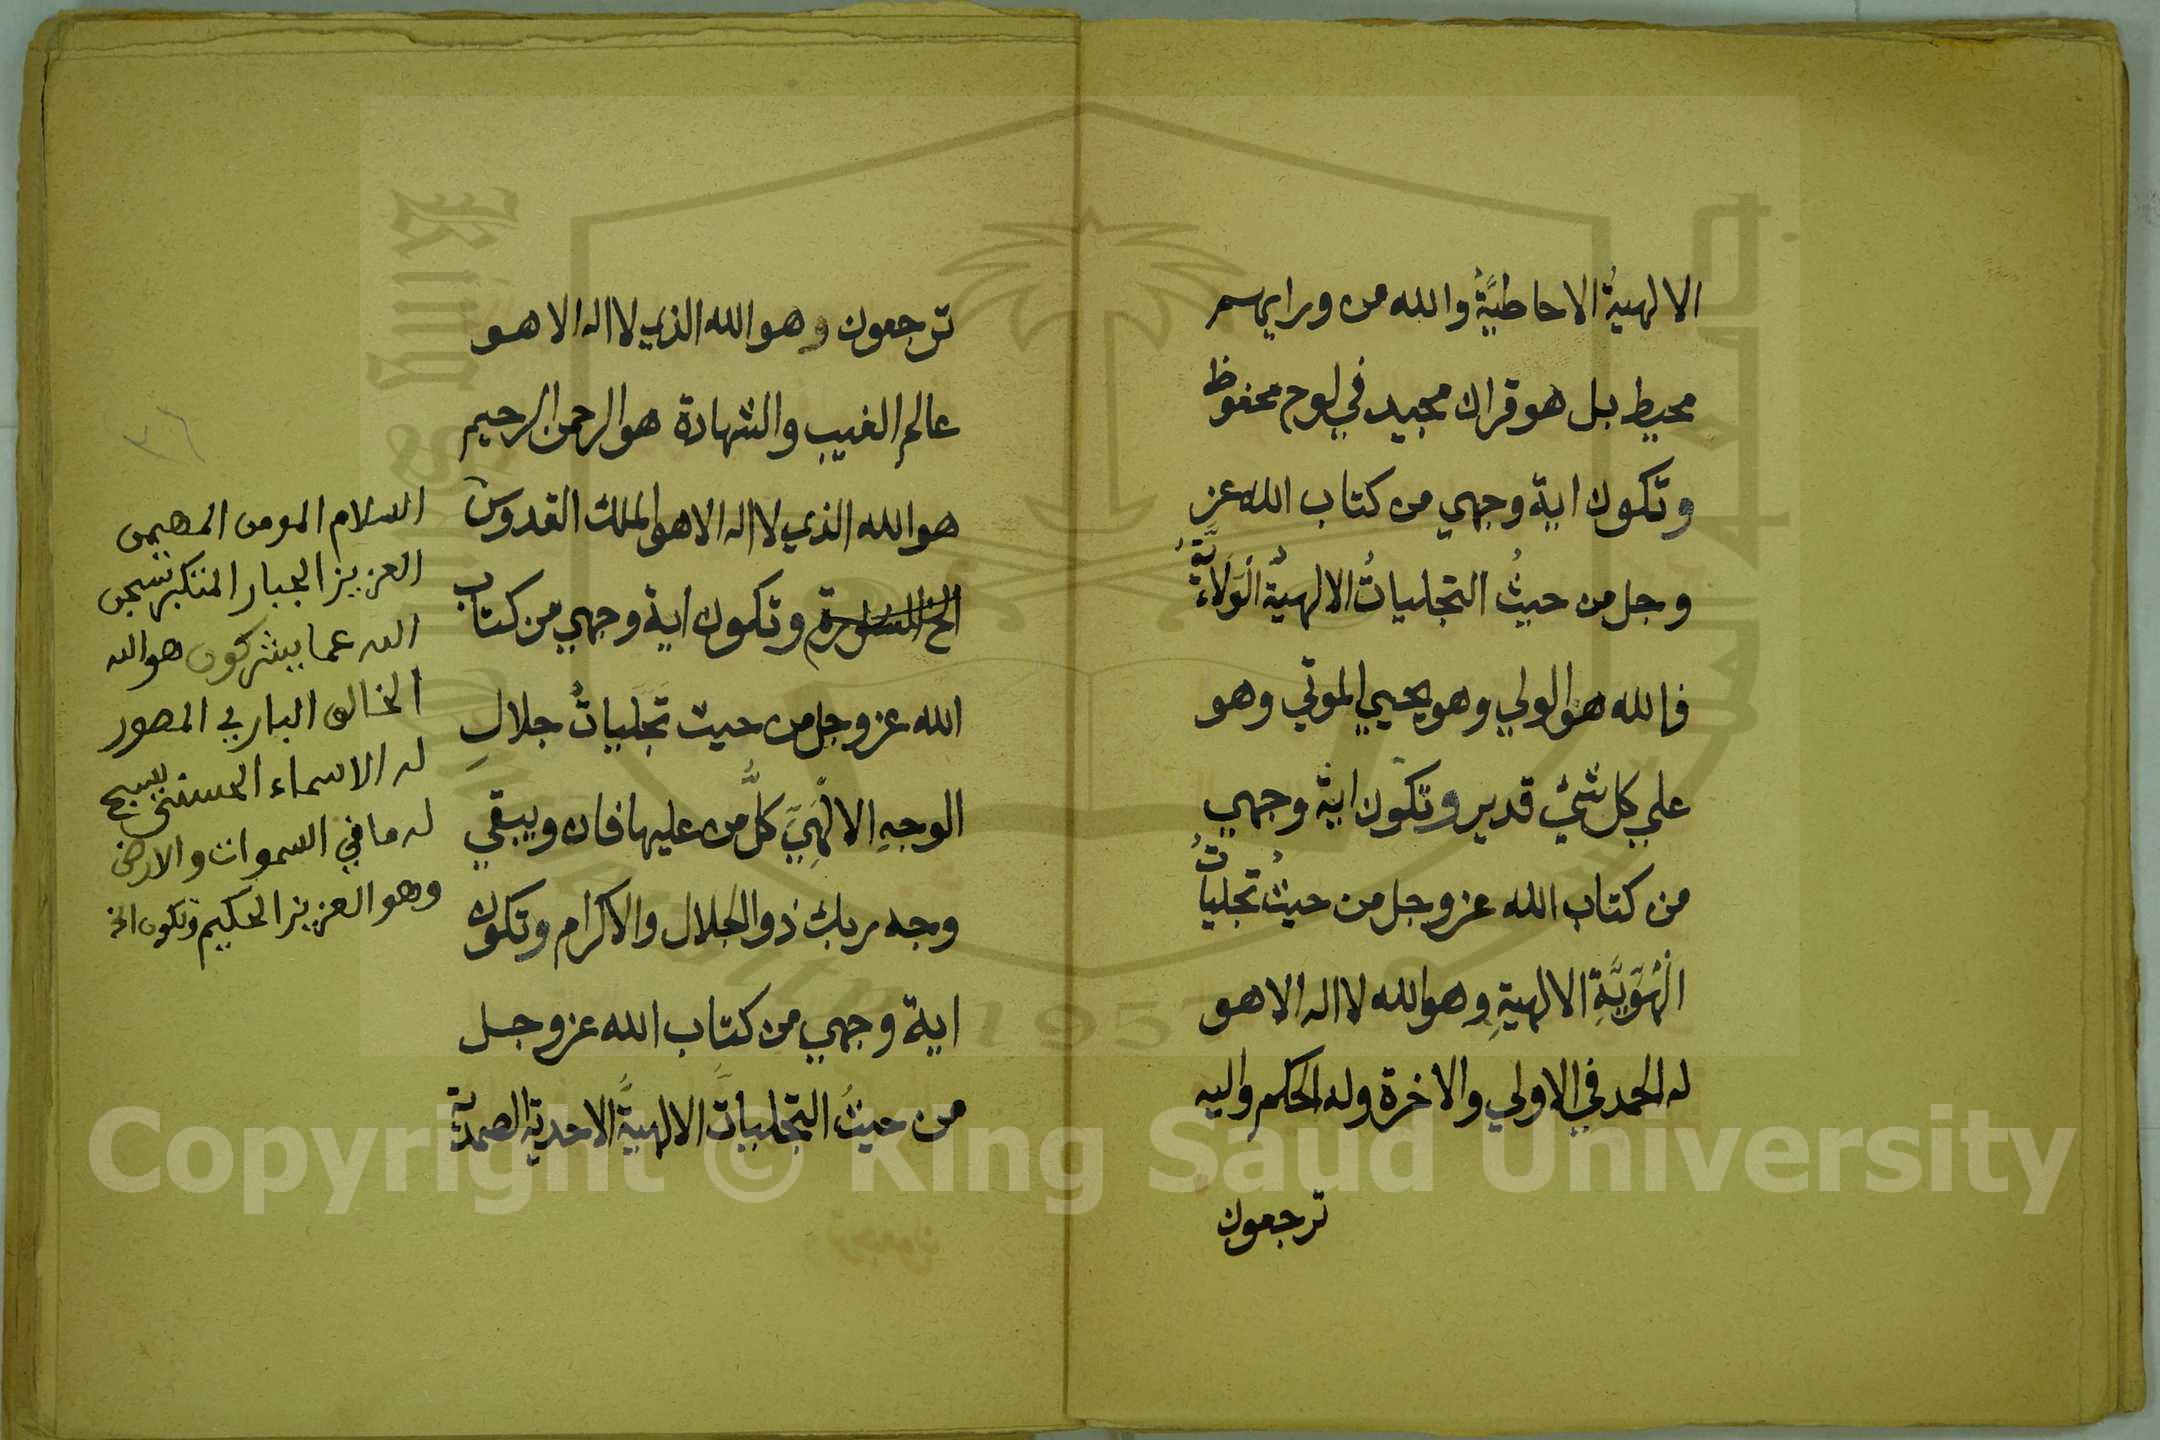 الالهيةُ الاحاطيَّةُ والله من ورايهم
محيط بل هو قران مجيد في لوح محفوظ
وتكون اية وجهي من كتاب الله عز
وجل من حيثُ التجلياتُ الالهيةُ الْوَلَايَّةُ
فالله هو الولي وهو يحيي الموتي وهو
علي كل شئ قدير وتكون اية وجهي
من كتاب الله عز وجل من حيثُ تجلياتُ
الْهُوِيَّةِ الالهيةِ وهو الله لا اله الا هو
له الحمد في الاولي والاخرة وله الحكم واليه
ترجعون
ترجعون وهو الله الذي لا اله الا هو
عالم الغيب والشهادة هو الرحمن الرحيم
هو الله الذي لا اله الا هو الملك القدوس
الخ السورة وتكون اية وجهي من كتاب
الله عز وجل من حيث تَجَلياتُ جلالِ
الوجهِ الالهِيِّ كلُّ من عليها فان ويبقي
وجه ربك ذو الجلال والاكرام وتكون
اية وجهي من كتاب الله عز وجل
من حيثُ التجلياتُ الالهيَّةُ الاحدية الصمدية
٢٦
السلام المومن المهيمن
العزيز الجبار المتكبر سبحن
الله عما يشركون هو الله
الخالق الباري المصور
له الاسماء الحسنى يسبح
له ما في السموات والارض
وهو العزيز الحكيم وتكون الخ
King Saud University
1957
Copyright © King Saud University